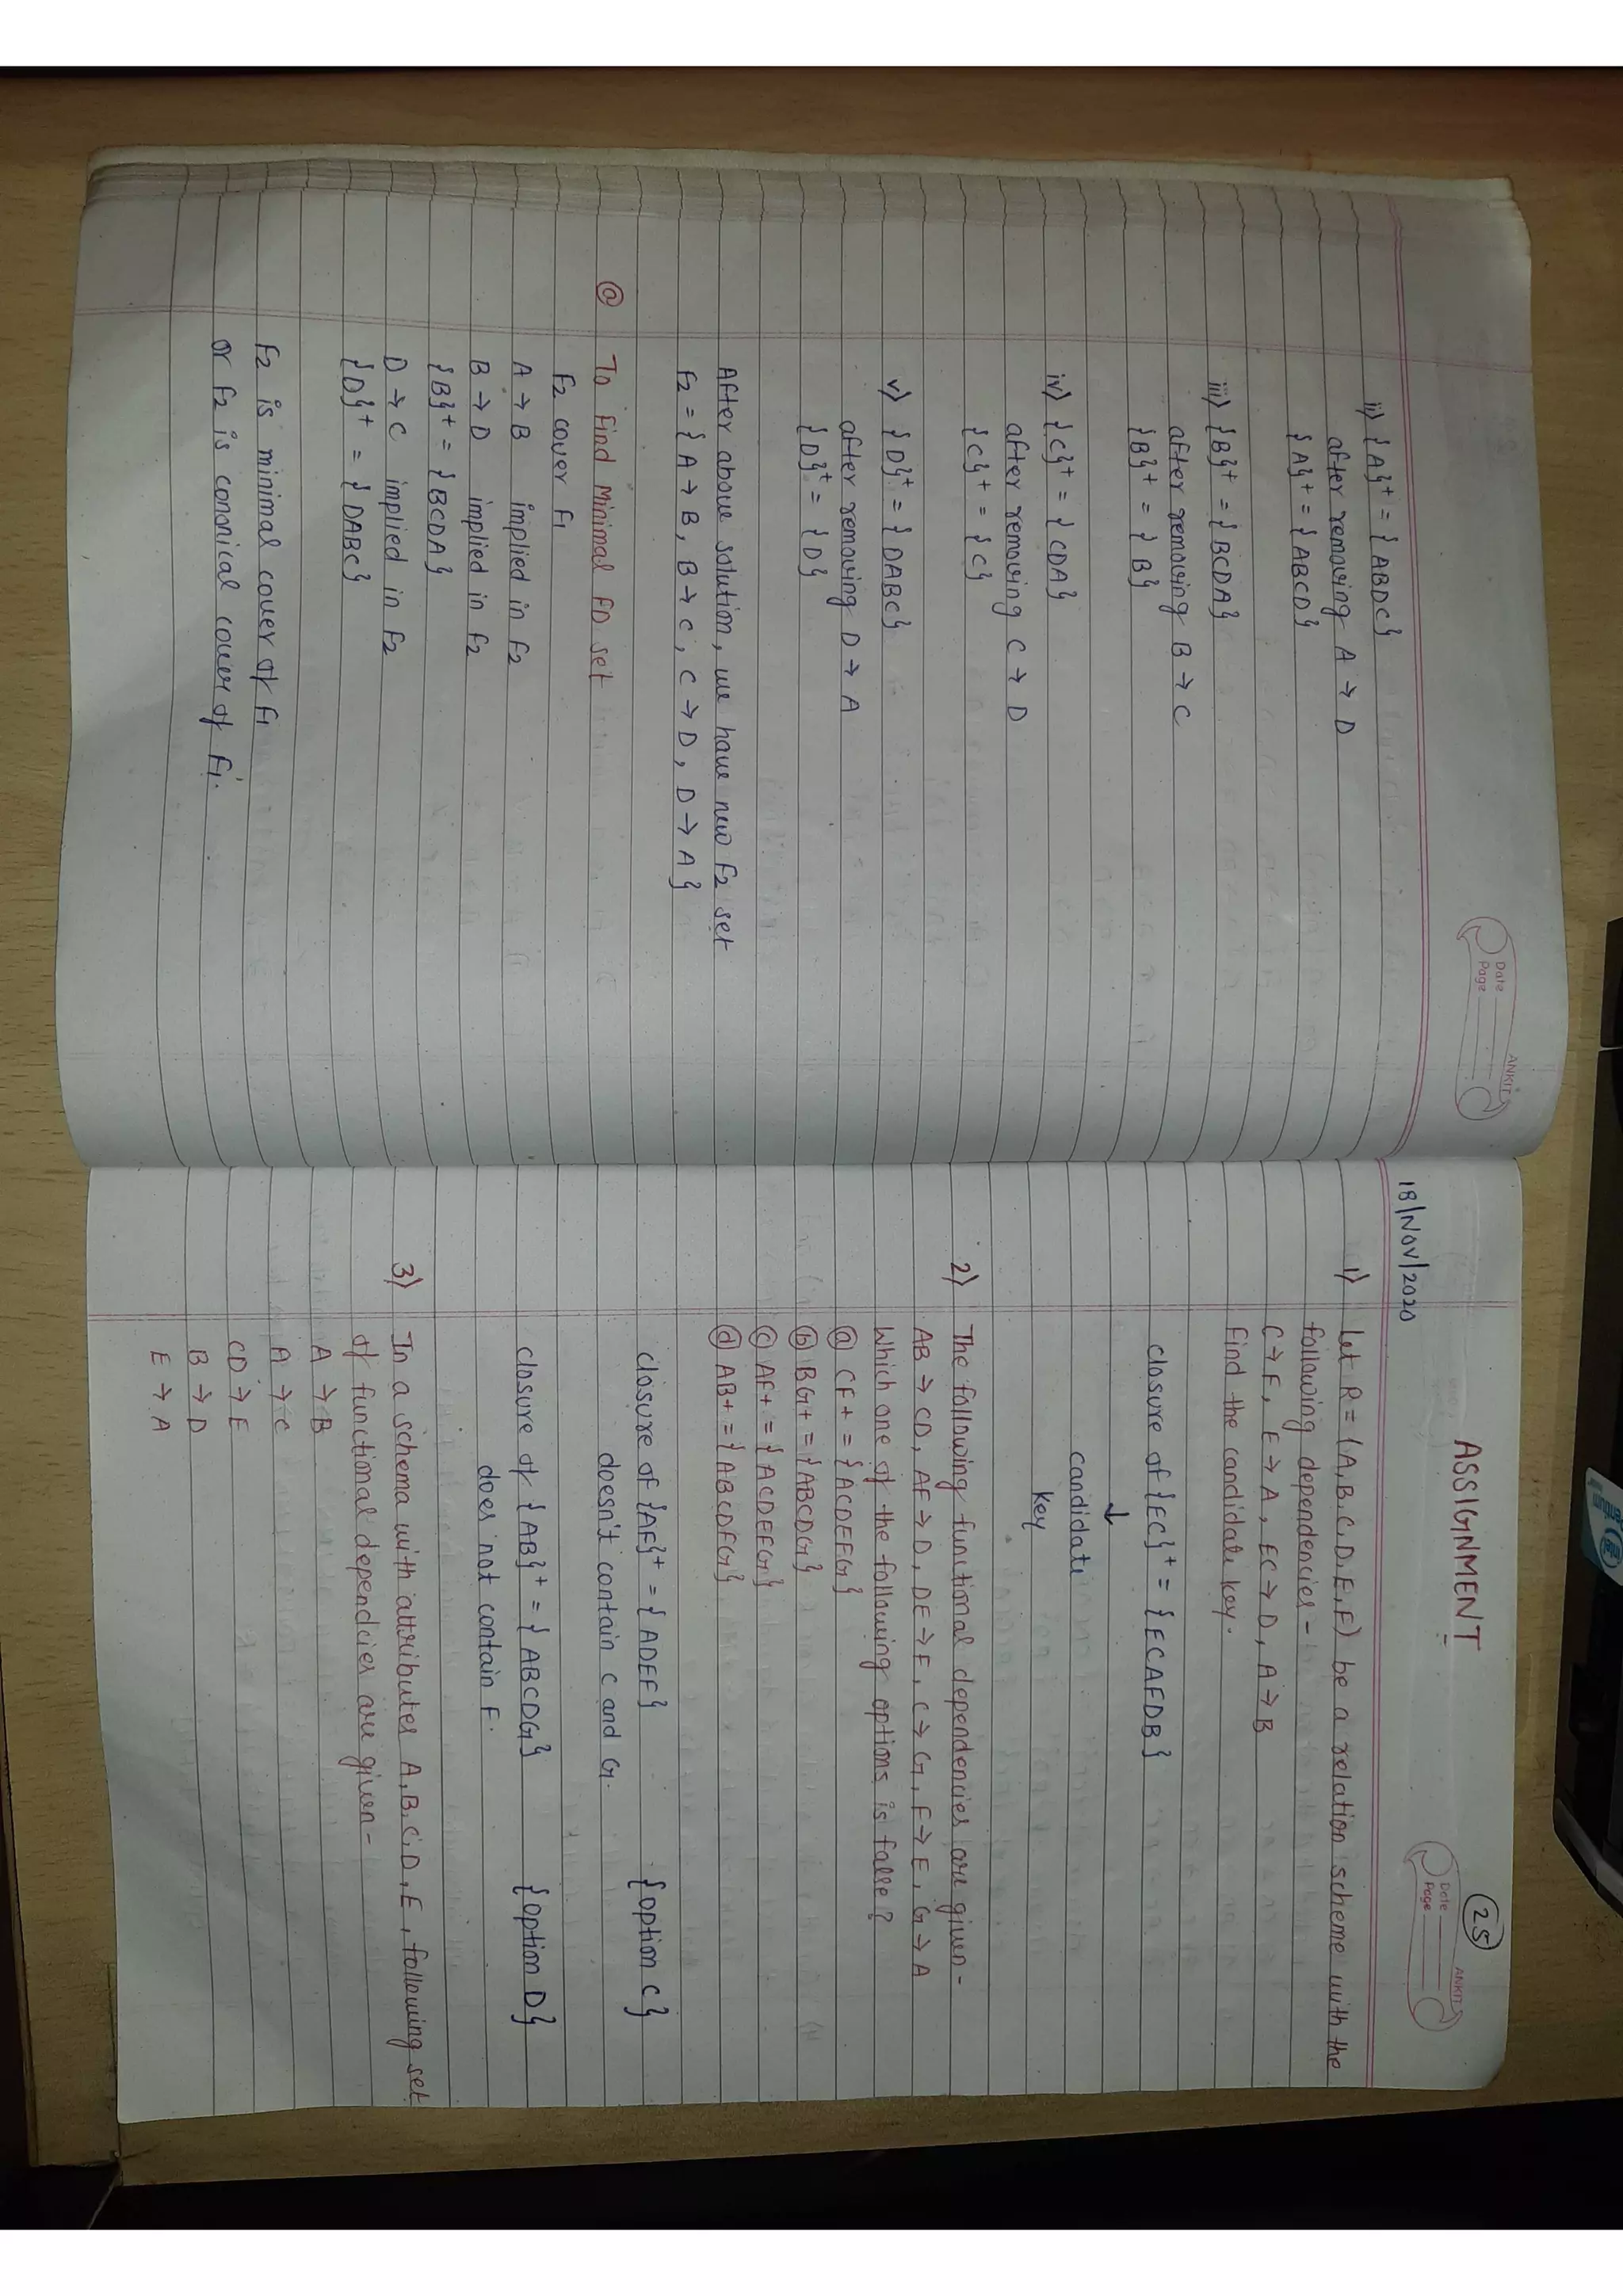 Date
Page
ANKIT
ii) {A}+ = {ABDC}
after removing A → D
{A}+ = {ABCD}
iii) {B}+ = {BCDA}
after removing B → C
{B}+ = {B}
iv) {C}+ = {CDA}
after removing C → D
{C}+ = {C}
v) {D}+ = {DABC}
after removing D → A
{D}+ = {D}
After above solution, we have new F2 set
F2 = {A → B, B → C, C → D, D → A}
@ To find Minimal FD set
F2 cover F1
A → B implied in F2
B → D implied in F2
{B}+ = {BCDA}
D → C implied in F2
{D}+ = {DABC}
F2 is minimal cover of F1
or F2 is cononical cover of F1.
25
Date
Page
ANKIT
ASSIGNMENT
18/NOV/2020
1) let R = (A, B, C, D, E, F) be a relation scheme with the
following dependencies -
C → F, E → A, EC → D, A → B
Find the candidate key.
closure of {EC}+ = {ECAFDB}
↓
candidate
key
2) The following functional dependencies are given -
AB → CD, AF → D, DE → F, C → G, F → E, G → A
Which one of the following options is false?
ⓐ CF+ = {ACDEFG}
ⓑ BG+ = {ABCDG}
ⓒ AF+ = {ACDEFG}
ⓓ AB+ = {ABCDFG}
closure of {AF}+ = {ADEF} {option C}
doesn't contain C and G.
closure of {AB}+ = {ABCDG} {option D}
does not contain F.
3) In a schema with attributes A, B, C, D, E, following set
of functional dependcies are given -
A → B
A → C
CD → E
B → D
E → A